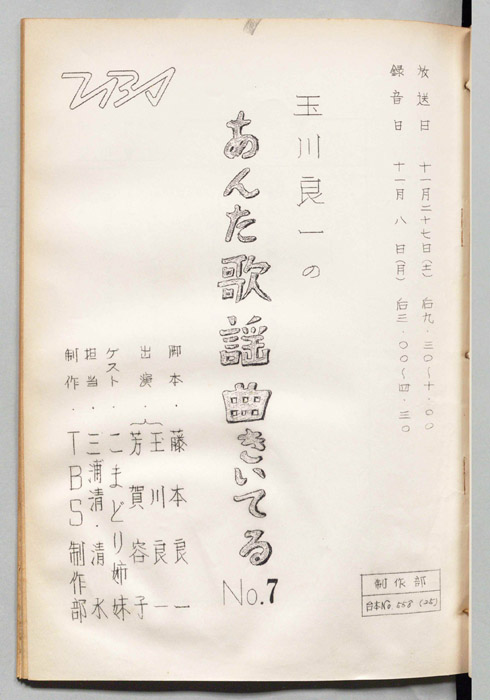 放送日 十一月二十七日(土) 后九・三〇〜十・〇〇
録音日 十一月八日(月) 后三・〇〇〜四・三〇
玉川良一の
あんた歌謡曲きいてる
No.7
TBS
脚本・藤本良一
出演・玉川良一
芳賀容子
ゲスト・こまどり姉妹
担当・三浦清・清水
制作・TBS制作部
制作部
台本No 558 (25)